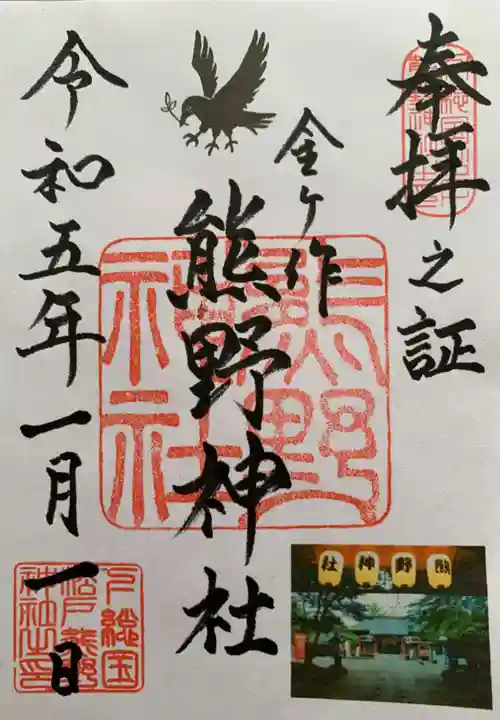 奉拝之証
金ケ作
熊野神社
令和五年一月一日
熊野
神社
下総国
松戸熊野
神社之印
熊野神社